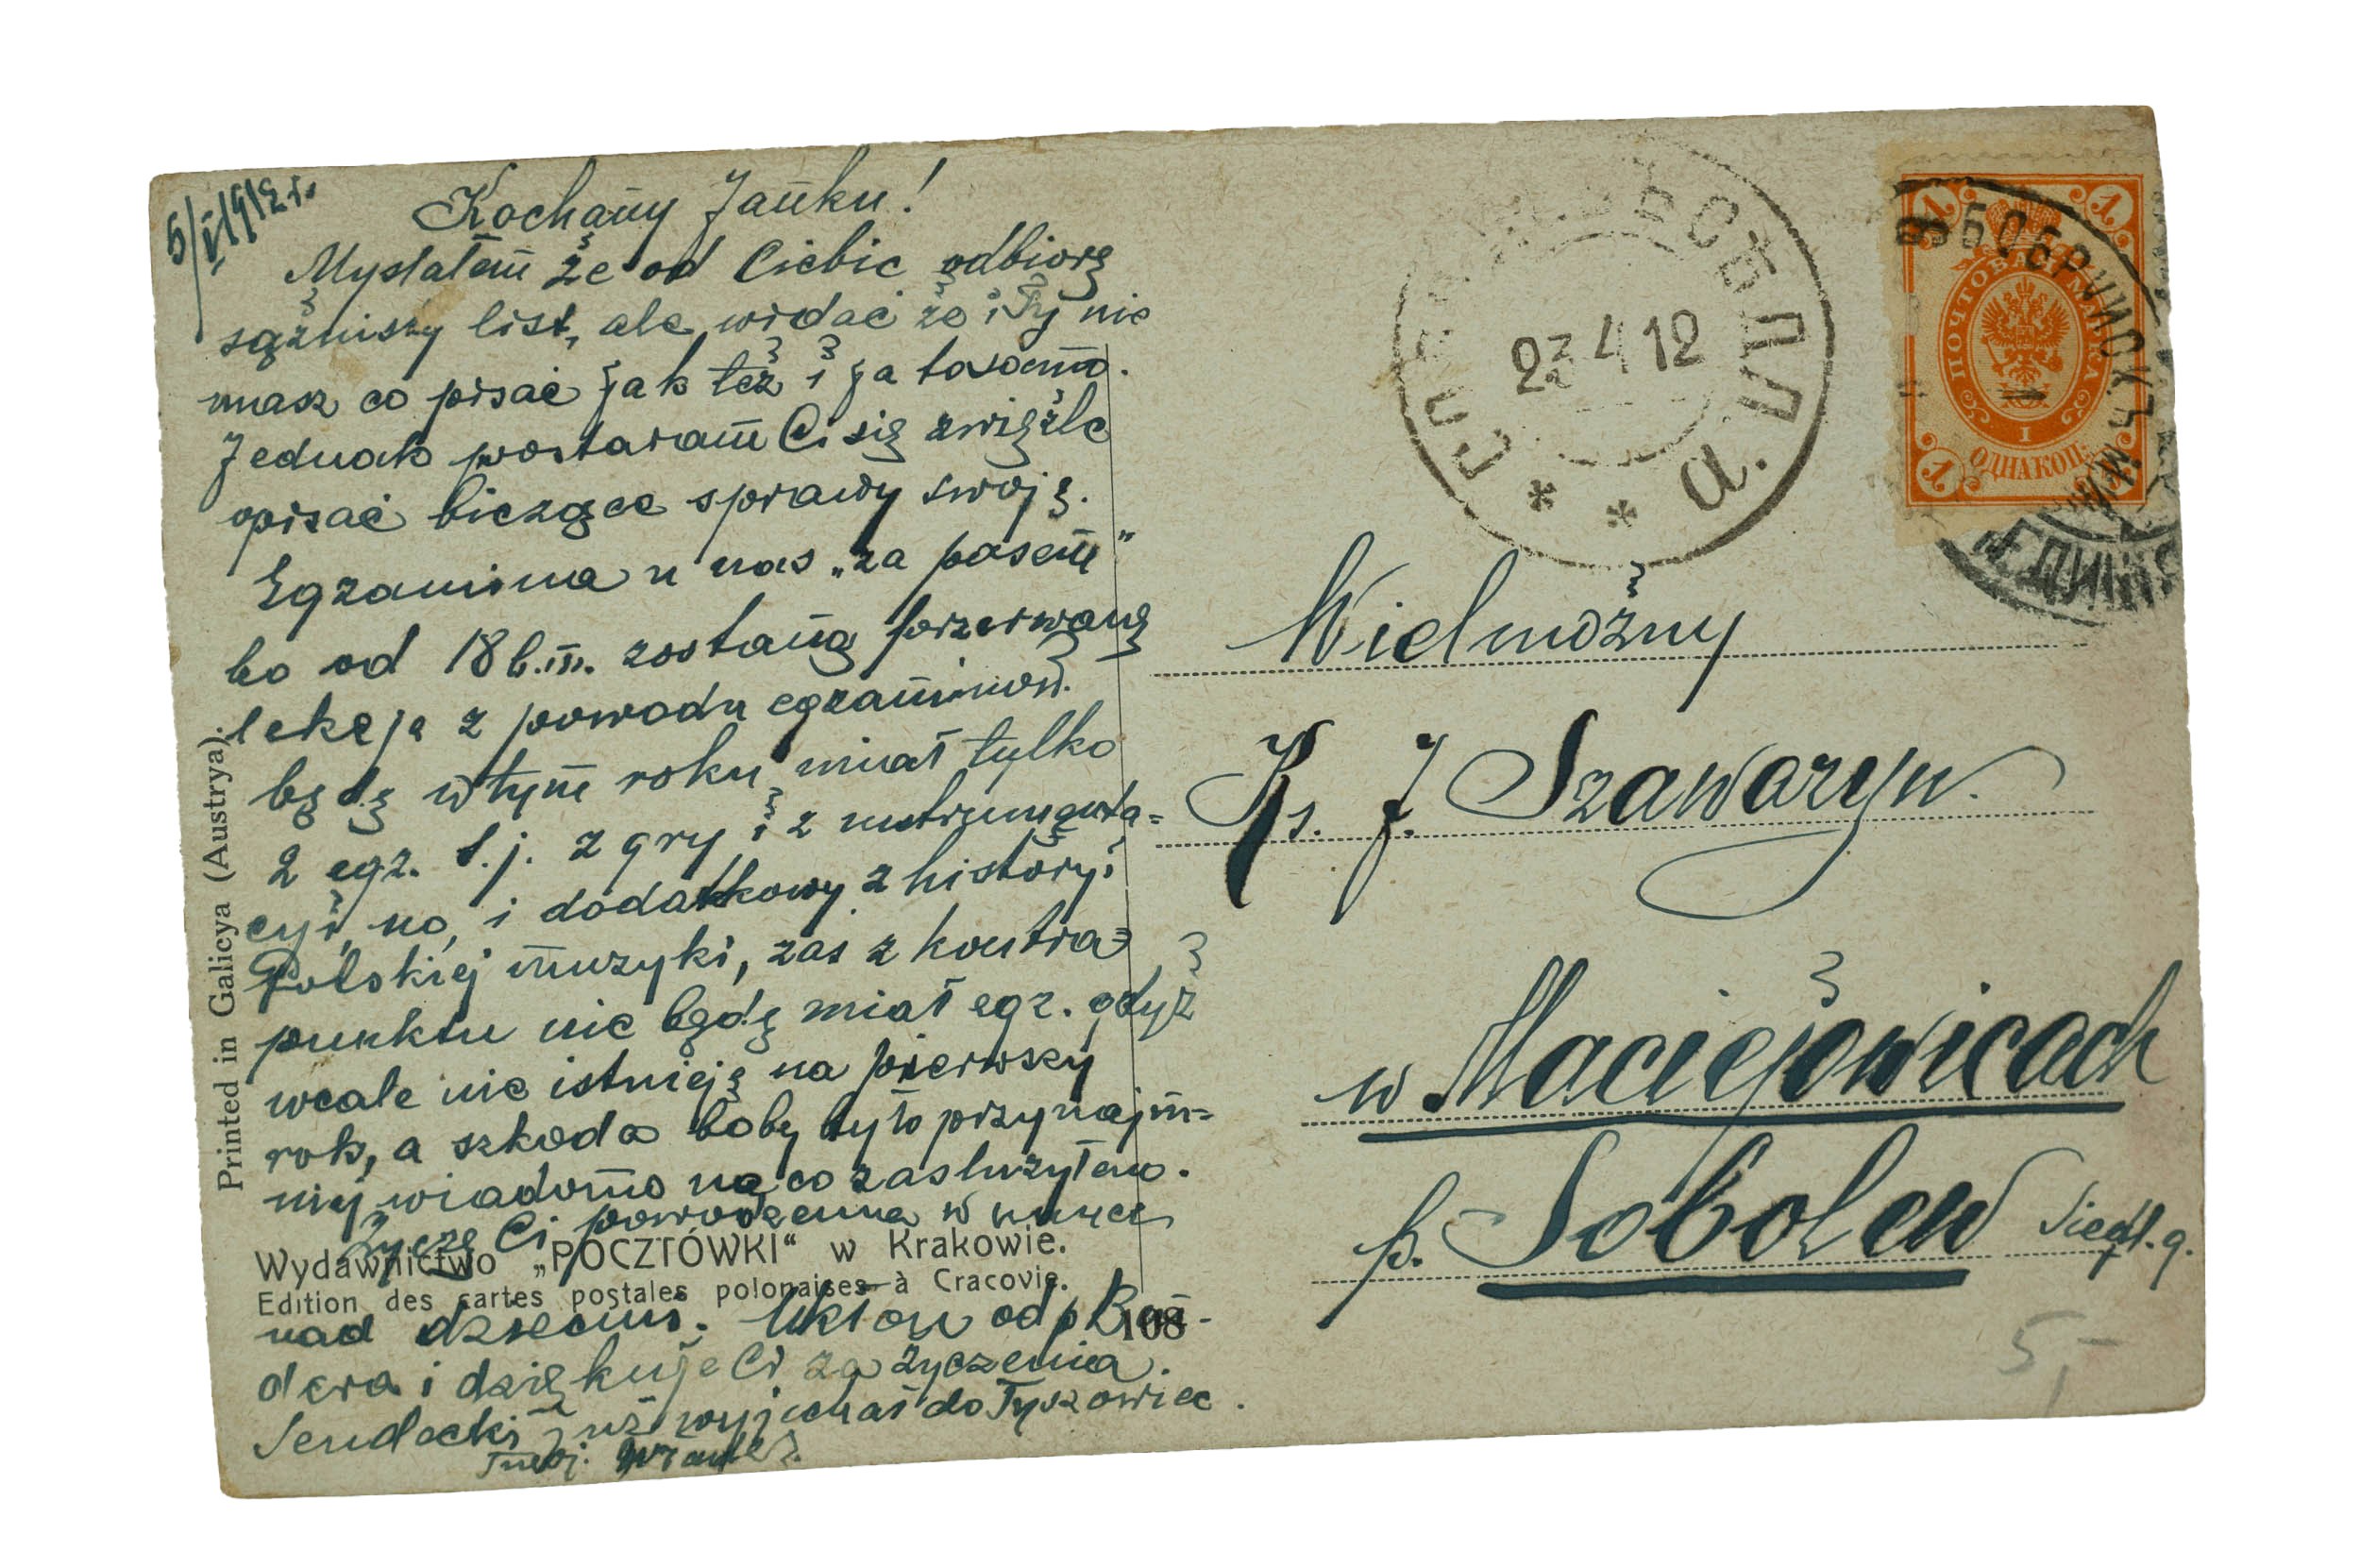 5/V 1912 r.
Kochany Janku!
Myślałem że od Ciebie odbiorę
sążnisty list, ale widać że i Ty nie
masz co pisać jak też i ja tosamo.
Jednak postaram Ci się zwięźle
opisać bieżące sprawy swoję.
Egzamina u nas „za pasem"
bo od 18 b.m. zostaną przerwanę
lekcje z powodu egzaminów.
będę w tym roku miał tylko
2 egz. t.j. z gry i z instrumenta=
cyi, no, i dodatkowy z historyi
Polskiej muzyki, zaś z kontra=
punktu nie będę miał egz. gdyż
wcale nie istnieję na pierwszy
rok, a szkoda boby było przynajm=
niej wiadomo na co zasłużyłem.
Życzę Ci powodzenia w
nad dziećmi. Ukłon od p.
dera i dziękuje Ci za życzenia.
Sendecki już wyjechał do Tyszowiec.
Twój
Printed in Galicya (Austrya).
Wydawnictwo „POCZTÓWKI“ w Krakowie.
Edition des cartes postales polonaises à Cracovie.
108
23 4 12
БОБРУЙСКЪ МИН.
ПОЧТОВАЯ МАРКА
1 1 1
I
ОДНА КОП.
Wielmożny
Ks. J. Szawaryn.
w Maciejowicach
p. Sobolew Siedl. g.
5,-